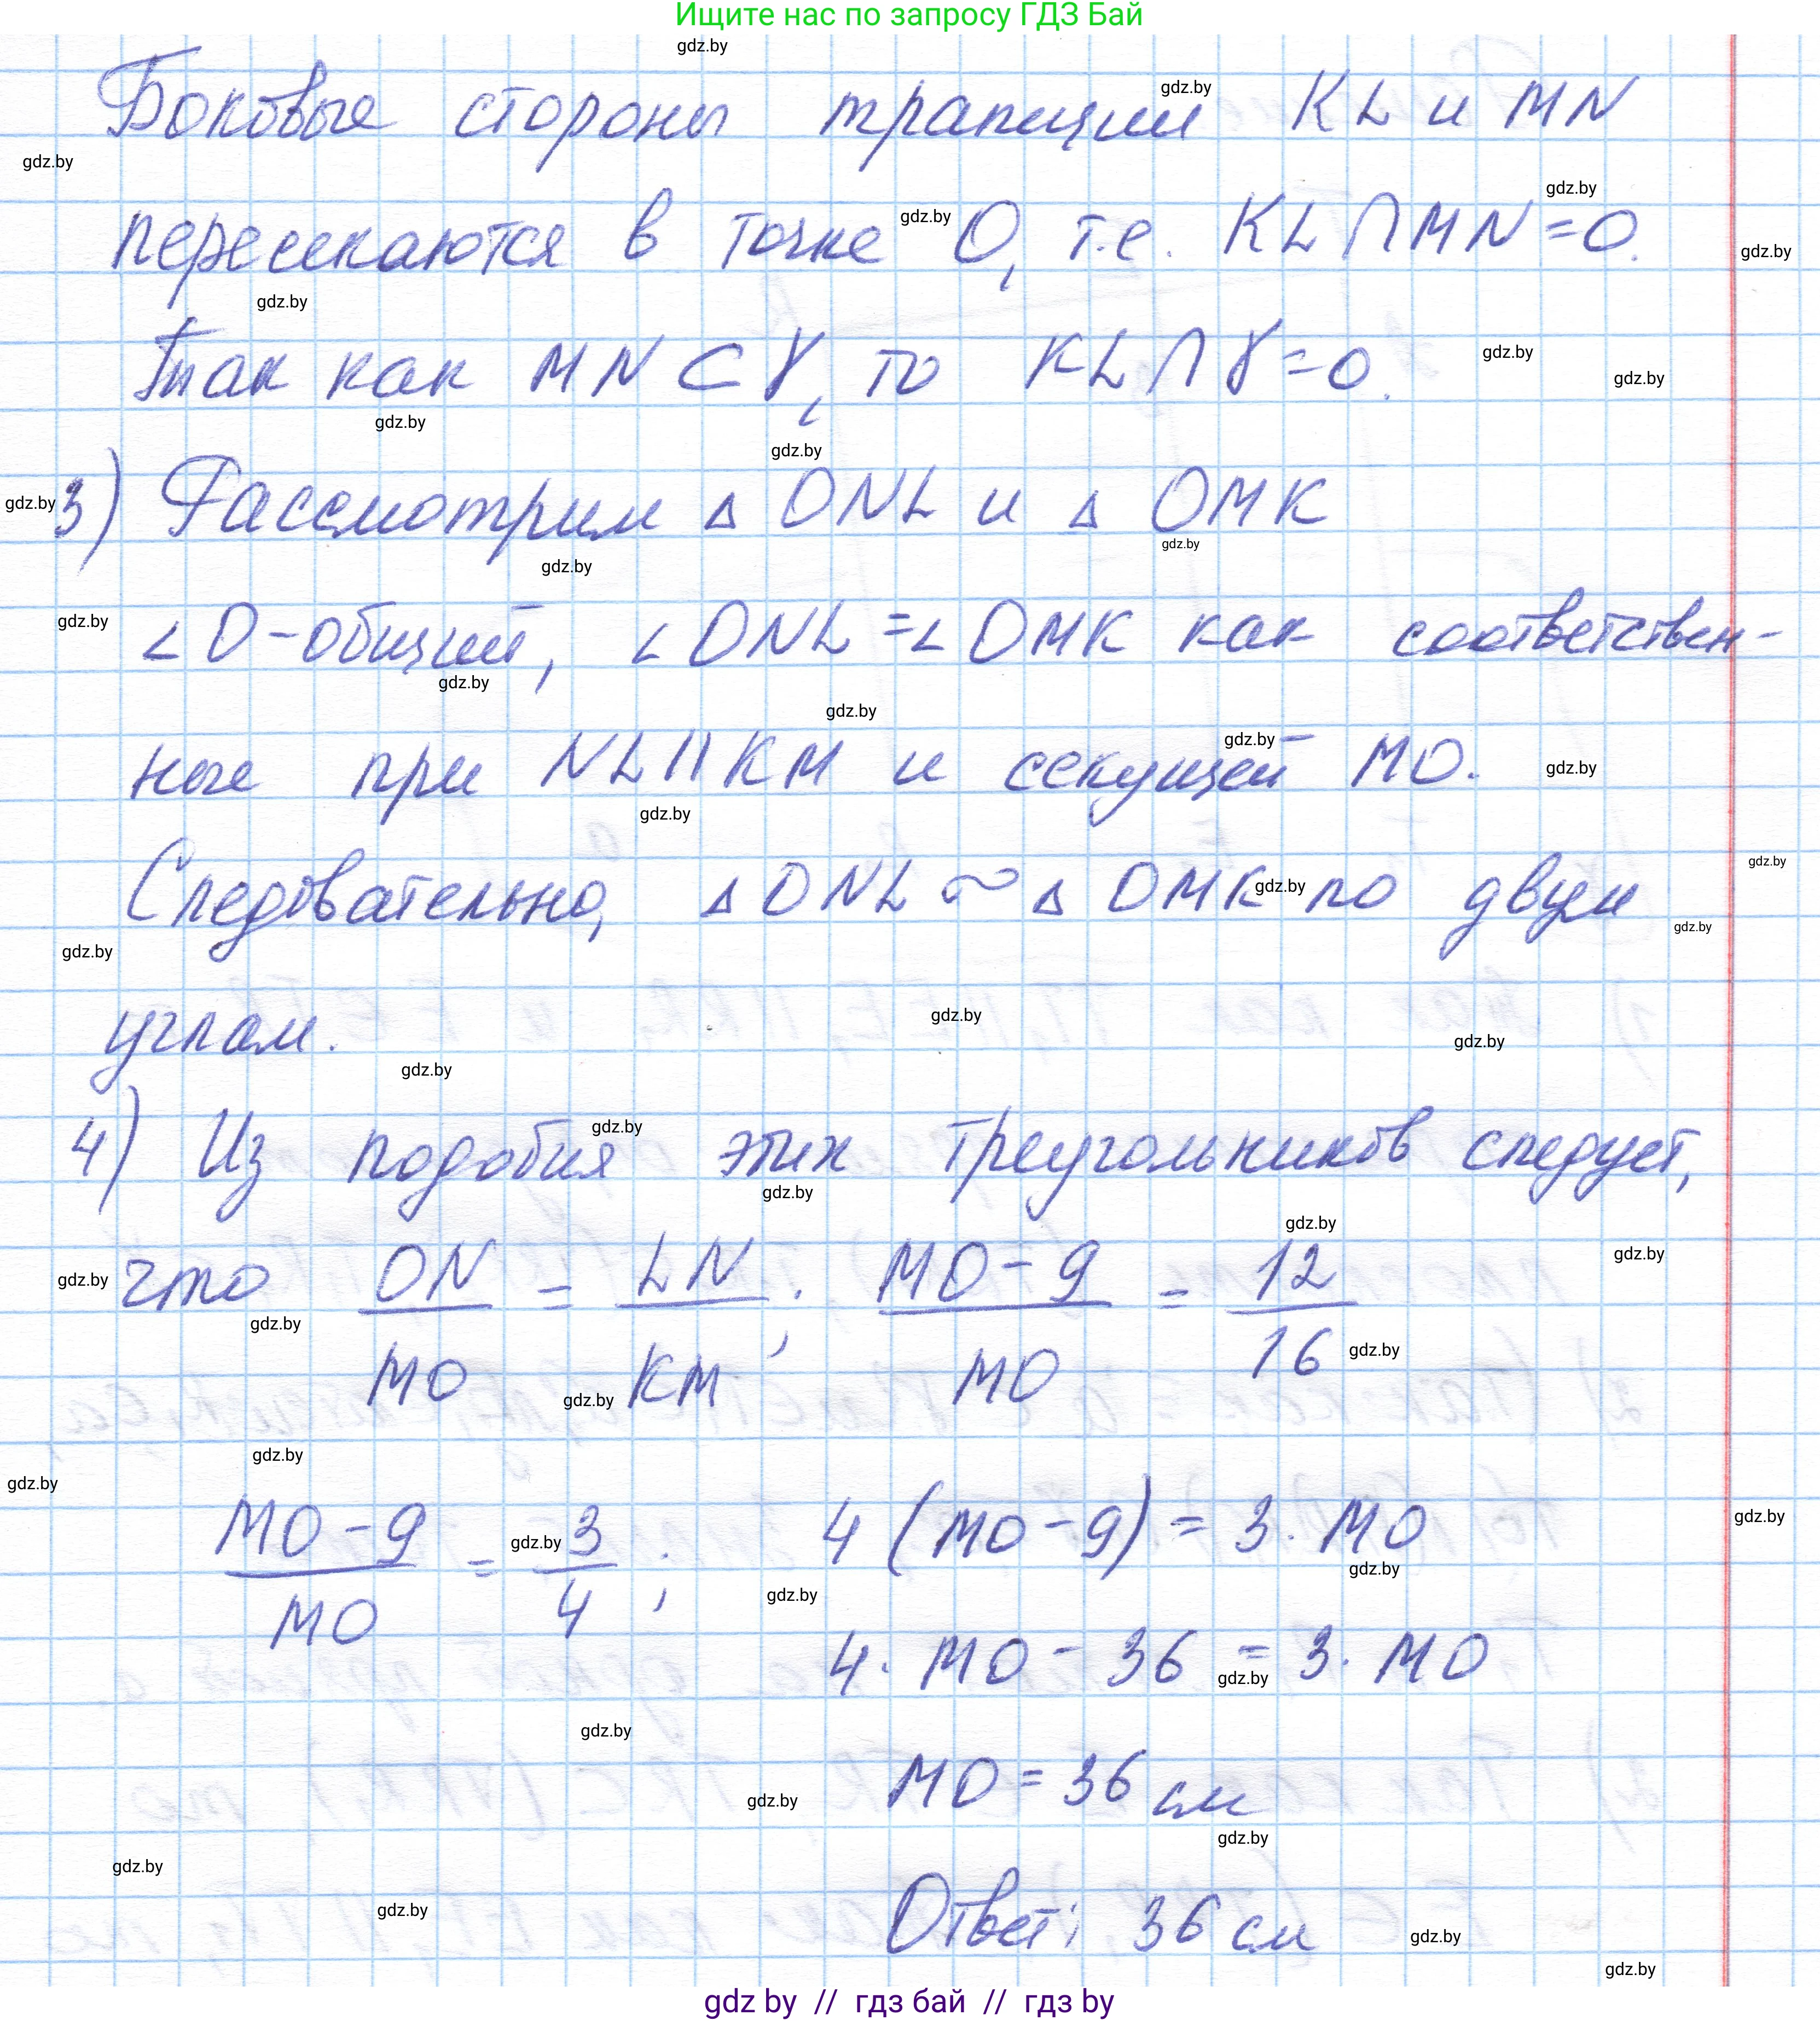 Ищите нас по запросу ГДЗ Бай
Боковые стороны трапеции KL и MN
пересекаются в точке O, т.е. KL ∩ MN = O.
Так как MN ⊂ γ, то KL ∩ γ = O.
3) Рассмотрим △ ONL и △ OMK
∠ O - общий, ∠ ONL = ∠ OMK как соответствен-
ные при NL || KM и секущей MO.
Следовательно, △ ONL ~ △ OMK по двум
углам.
4) Из подобия этих треугольников следует,
что ON/MO = LN/KM; MO - 9/MO = 12/16
MO - 9/MO = 3/4; 4 (MO - 9) = 3 · MO
4 · MO - 36 = 3 · MO
MO = 36 см
Ответ: 36 см
gdz by // гдз бай // гдз by